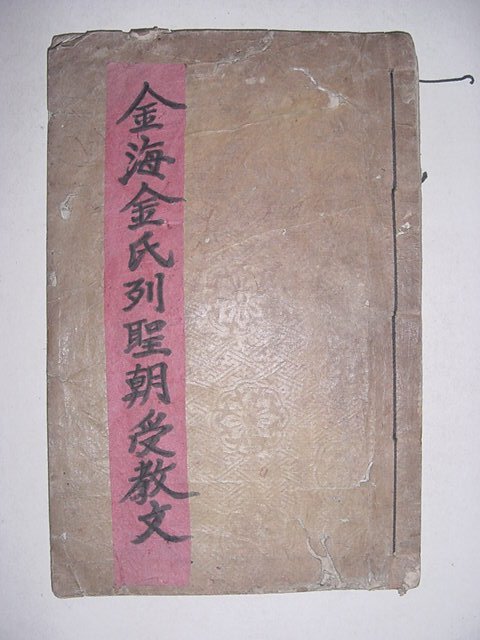 金海金氏列聖朝受教文